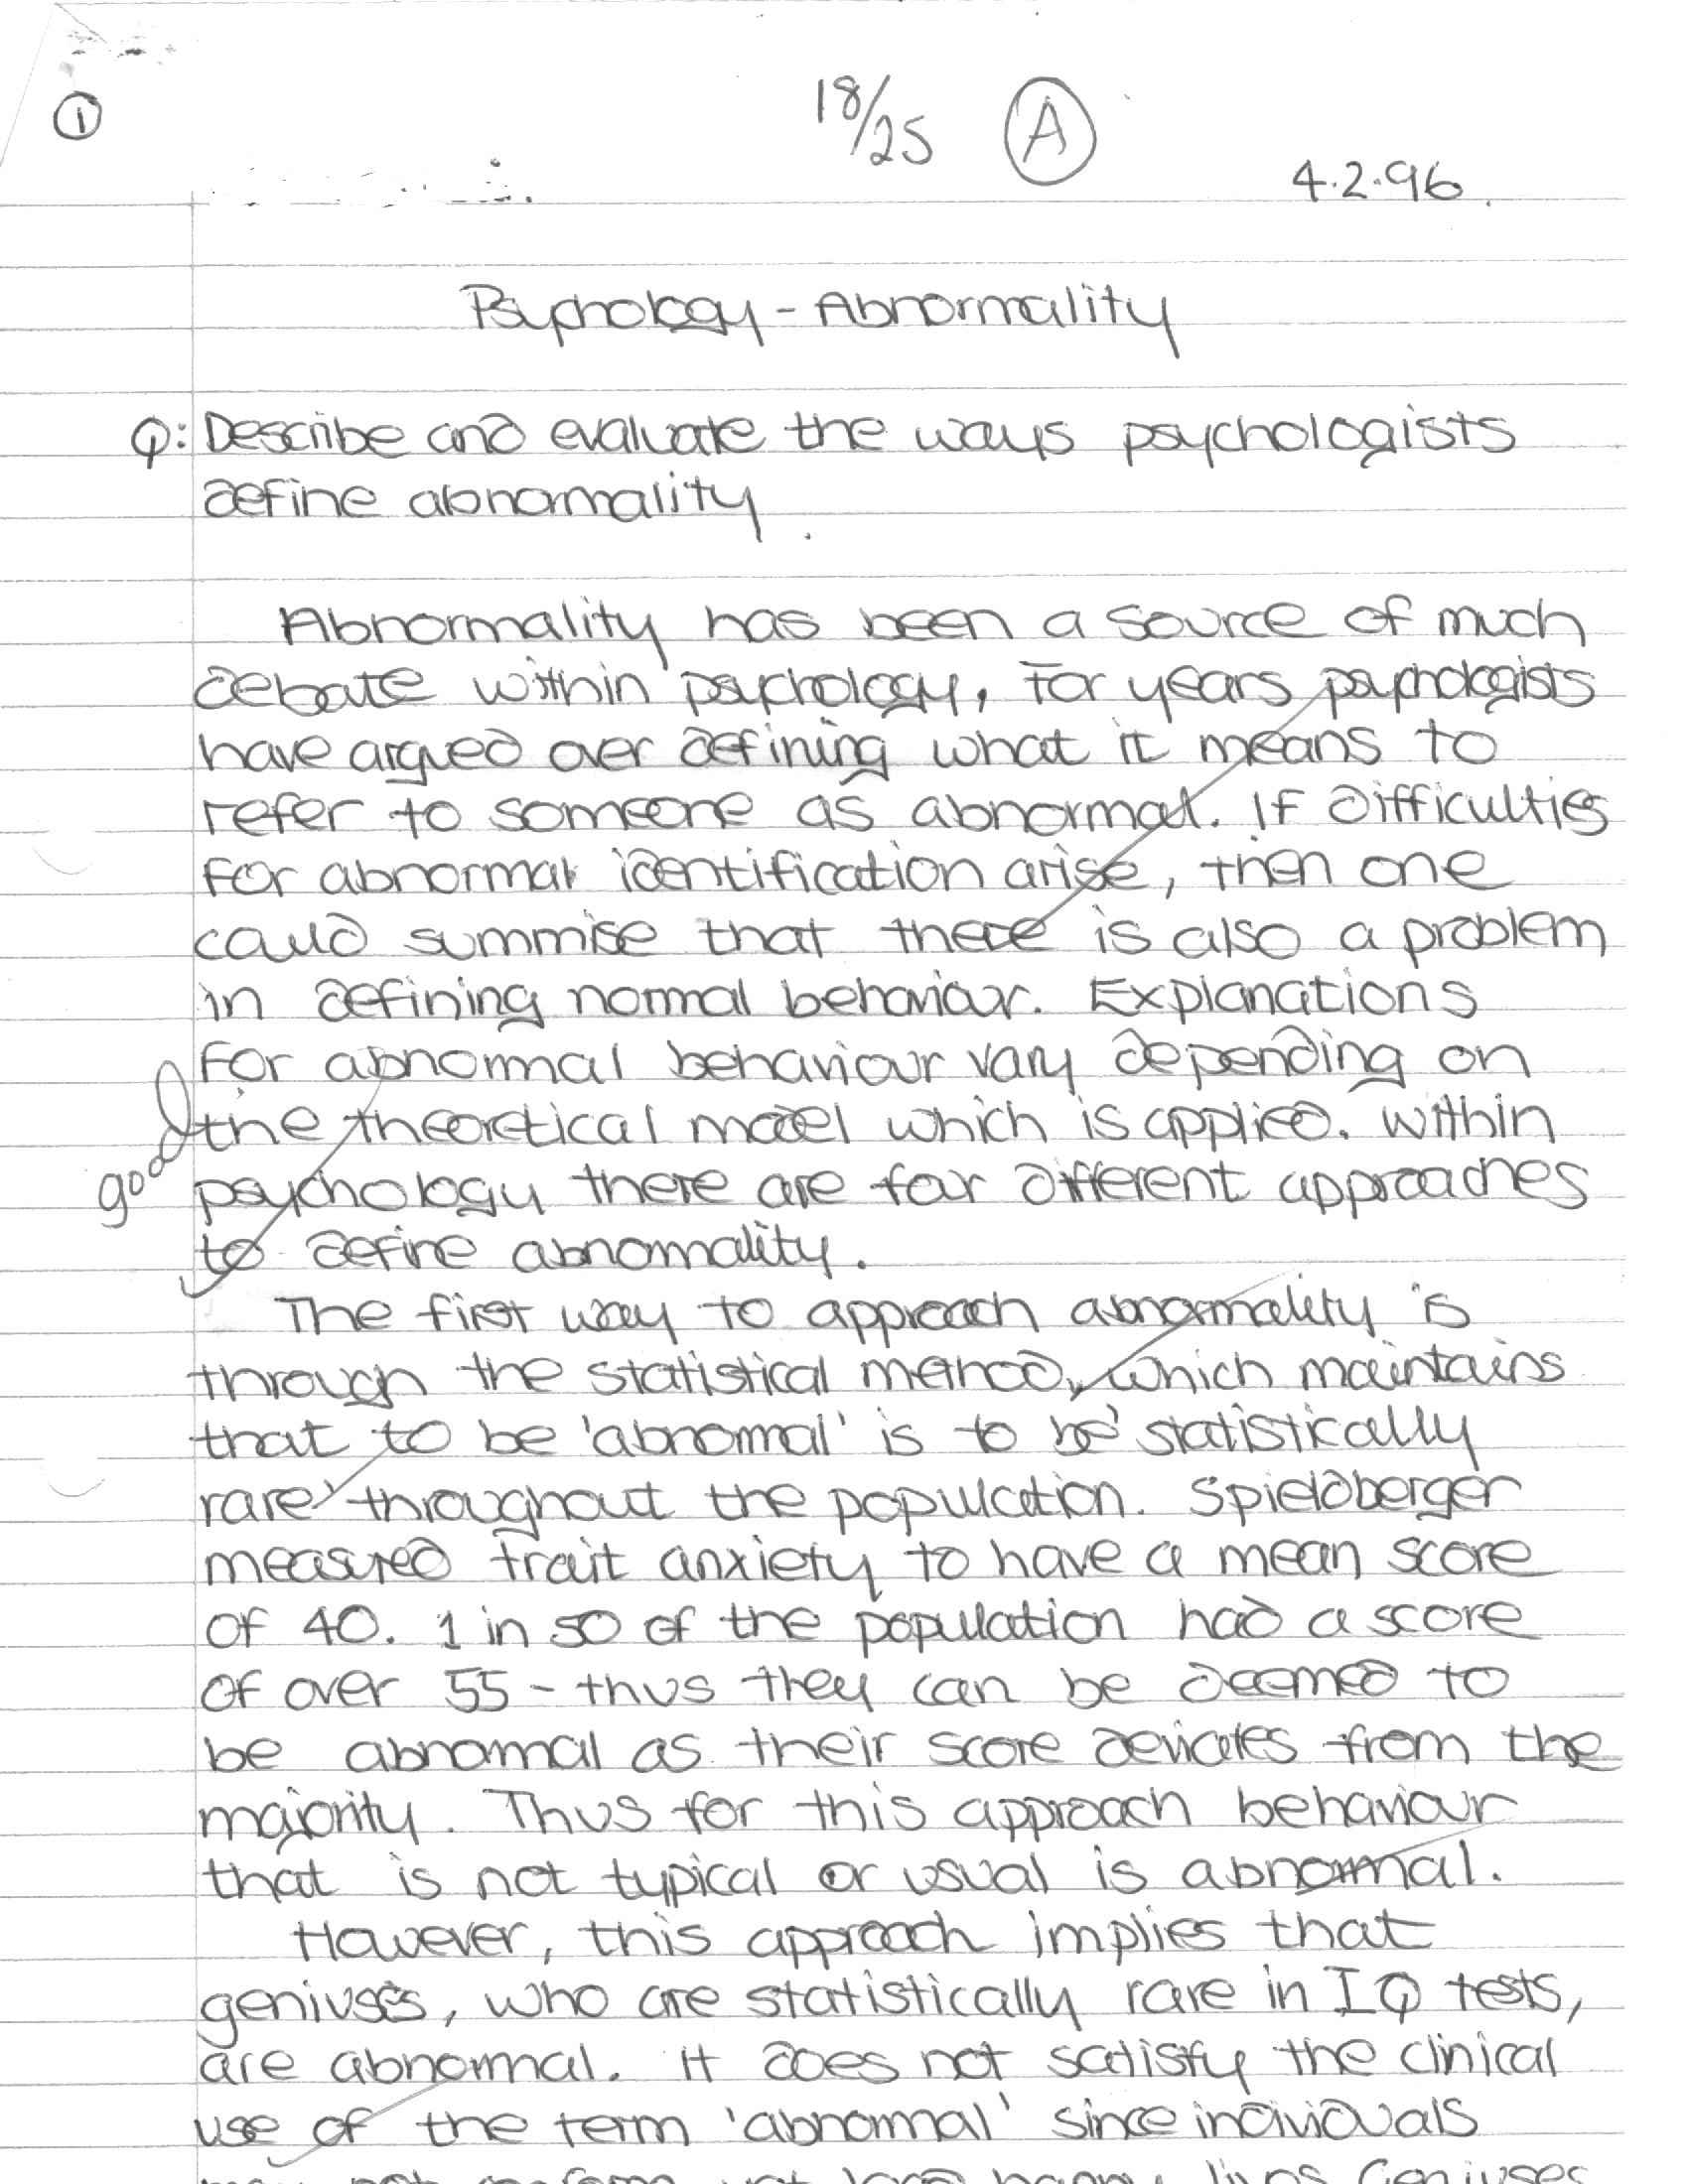 ①
18/25 Ⓐ
4.2.96.
Psychology - Abnormality
Q: Describe and evaluate the ways psychologists
define abnormality.
Abnormality has been a source of much
debate within psychology, For years psychologists
have argued over defining what it means to
refer to someone as abnormal. If difficulties
for abnormal identification arise, then one
could summise that there is also a problem
in defining normal behaviour. Explanations
for abnormal behaviour vary depending on
the theoretical model which is applied. Within
good
psychology there are four different approaches
to define abnormality.
The first way to approach abnormality is
through the statistical method, which maintains
that to be 'abnormal' is to be 'statistically
rare' throughout the population. Spieldberger
measured trait anxiety to have a mean score
of 40. 1 in 50 of the population had a score
of over 55 - thus they can be deemed to
be abnormal as their score deviates from the
majority. Thus for this approach behaviour
that is not typical or usual is abnormal.
However, this approach implies that
geniuses, who are statistically rare in IQ tests,
are abnormal. It does not satisfy the clinical
use of the term 'abnormal' since individuals
may not conform yet lead happy lives. Geniuses